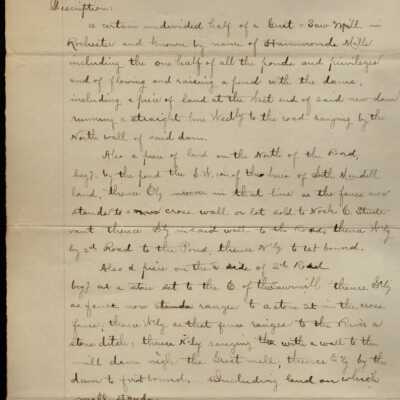 Description:
a certain undivided half of a Grist & Saw Mill in
Rochester and known by name of Hammonds Mills
including the one half of all the ponds and priviliges
and of flowing and raising a pond with the dams,
including a piece of land at the West end of said new dam
running a straight line Westly to the road ranging by the
North wall of said dam.
Also a piece of land on the North of the Road,
beg'g by the pond the S.W. cor of the line of Seth Mendell
land; thence Ely in that line as the fence now
stands to a cross wall or lot sold to Noah C. Sturte
vant thence Sly in said wall to the Road, thence Wly
by sd Road to the Pond, thence Nly to 1st bound.
Also a piece on the side of sd Road
beg'g at a stone set to the E of the sawmill thence Sly
as fence now stands ranges to a stone in the cross
fence; thence Wly as that fence ranges to the River a
stone ditch; thence Nly ranging with a wall to the
mill dam nigh the Grist mill; thence Ely by the
dam to first bound. Including land on which
mill stands.